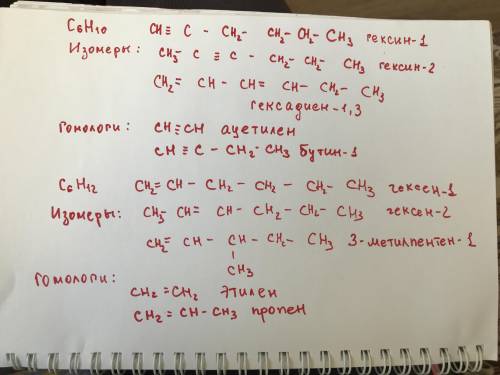 C₆H₁₀ CH≡C-CH₂-CH₂-CH₂-CH₃ гексин-1
Изомеры: CH₃-C≡C-CH₂-CH₂-CH₃ гексин-2
CH₂=CH-CH=CH-CH₂-CH₃
гексадиен-1,3
Гомологи: CH≡CH ацетилен
CH≡C-CH₂-CH₃ Бутин-1
C₆H₁₂ CH₂=CH-CH₂-CH₂-CH₂-CH₃ гексен-1
Изомеры: CH₃-CH=CH-CH₂-CH₂-CH₃ гексен-2
CH₂=CH-CH-CH₂-CH₃ 3-метилпентен-1
CH₃
Гомологи:
CH₂=CH₂ этилен
CH₂=CH-CH₃ пропен